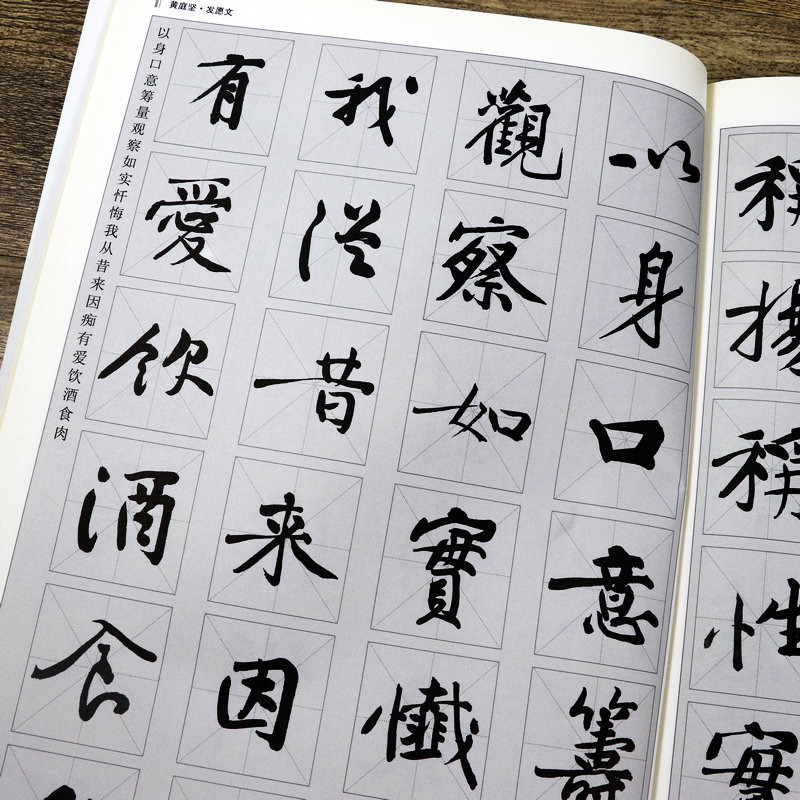 黄庭坚·发愿文
稱揚稱性實
以身口意籌
觀察如實懺
我從昔来因
有愛飲酒食
以身口意筹量观察如实忏悔我从昔来因痴有爱饮酒食肉